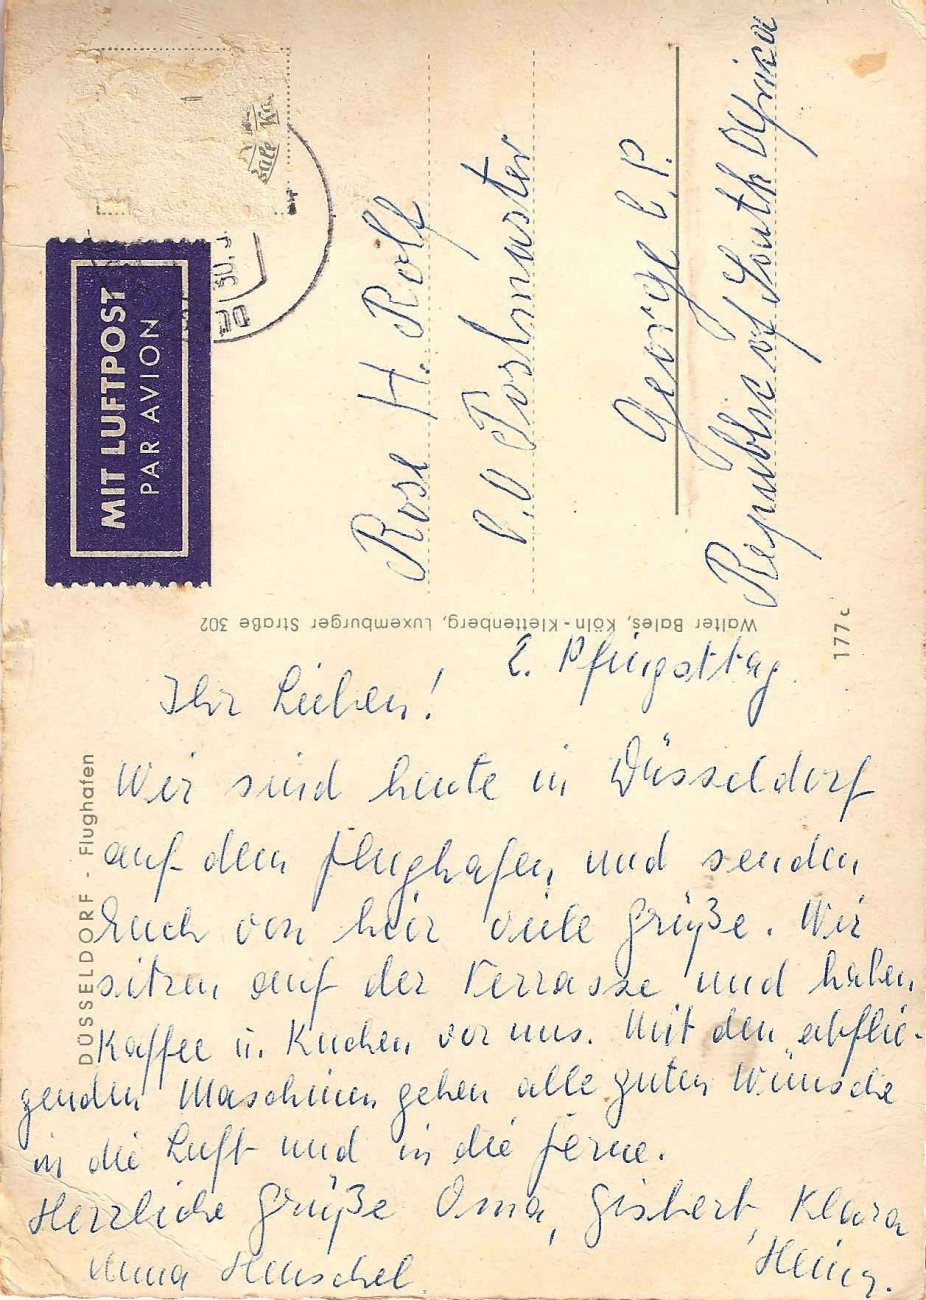 MIT LUFTPOST
PAR AVION
30.
Rose H. Rolf
C.O Postmaster
George C.P.
Republic of South Afrika
Walter Bales, Köln-Klettenberg, Luxemburger Straße 302
177c
DÜSSELDORF - Flughafen
2. Pfingsttag
Ihr Lieben!
Wir sind heute in Düsseldorf
auf dem Flughafen und senden
Euch von hier viele Grüße. Wir
sitzen auf der Terrasse und haben
Kaffee u. Kuchen vor uns. Mit den abflie-
genden Maschinen gehen alle guten Wünsche
in die Luft und in die Ferne.
Herzliche Grüße Oma, Gisbert, Klara
Anna Henschel Heinz.